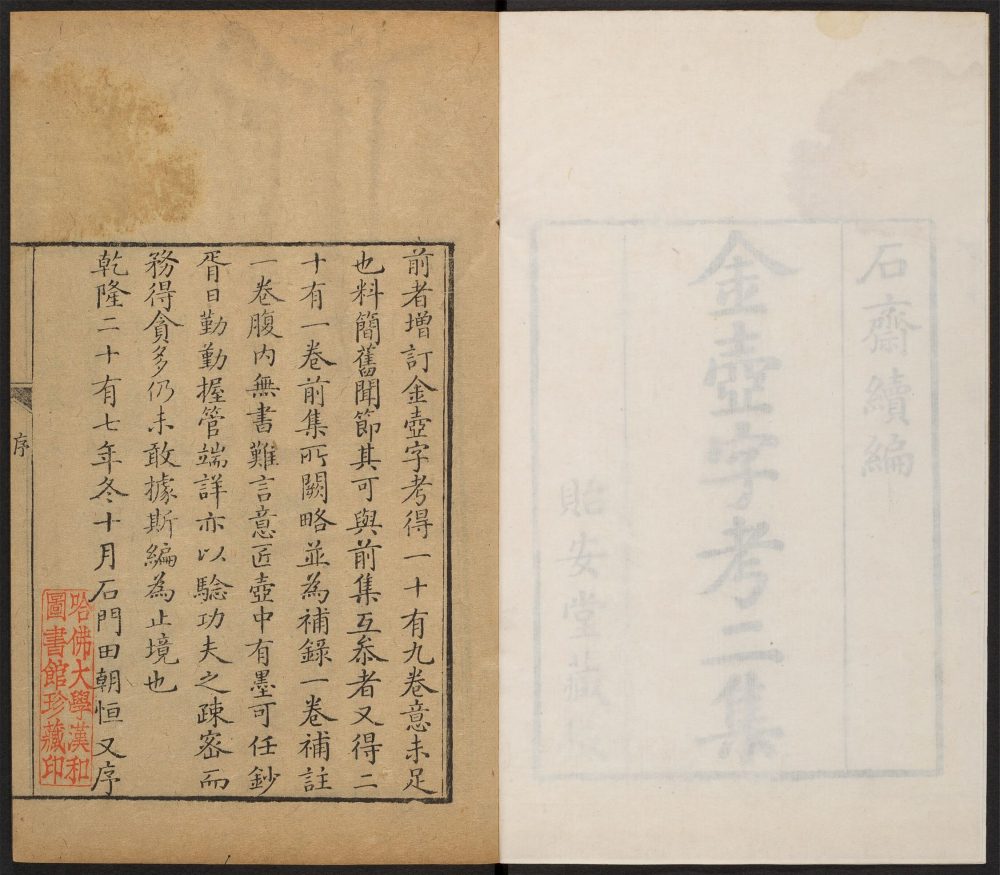 石齋續編
金壺字考二集
貽安堂藏板
前者增訂金壺字考得一十有九卷意未足
也料簡舊聞節其可與前集互叅者又得二
十有一卷前集所闕略並為補錄一卷補註
一卷腹內無書難言意匠壺中有墨可任鈔
胥日勤勤握管端詳亦以驗功夫之疎密而
務得貪多仍未敢據斯編為止境也
乾隆二十有七年冬十月石門田朝恒又序
哈佛大學漢和
圖書館珍藏印
序